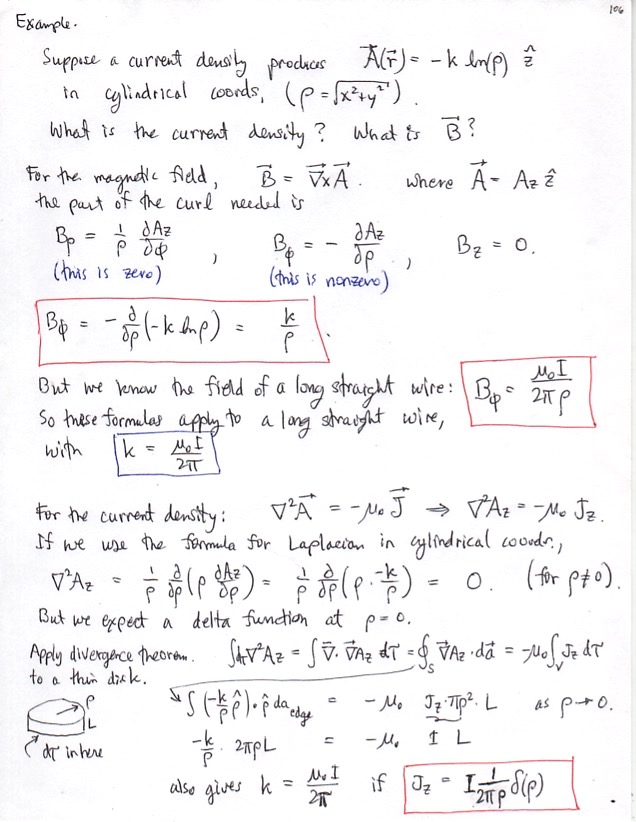 106
Example.
Suppose a current density produces A⃗(r⃗) = -k ln(ρ) ẑ
in cylindrical coords, (ρ = √(x²+y²)).
What is the current density? What is B⃗?
For the magnetic field, B⃗ = ∇⃗×A⃗. where A⃗ = Az ẑ
the part of the curl needed is
Bρ = 1/ρ ∂Az/∂φ , Bφ = - ∂Az/∂ρ , Bz = 0.
(this is zero) (this is nonzero)
Bφ = - ∂/∂ρ (-k ln ρ) = k/ρ .
But we know the field of a long straight wire: Bφ = μ₀I/2πρ
So these formulas apply to a long straight wire,
with k = μ₀I/2π
For the current density: ∇²A⃗ = -μ₀ J⃗ ⇒ ∇²Az = -μ₀ Jz.
If we use the formula for Laplacian in cylindrical coords.,
∇²Az = 1/ρ ∂/∂ρ (ρ ∂Az/∂ρ) = 1/ρ ∂/∂ρ (ρ · -k/ρ) = 0. (for ρ≠0).
But we expect a delta function at ρ=0.
Apply divergence theorem. ∫dτ ∇²Az = ∫∇⃗·∇⃗Az dτ = ∮S ∇⃗Az · da⃗ = -μ₀∫V Jz dτ
to a thin disk.
∫(-k/ρ ρ̂)·ρ̂ da edge = -μ₀ Jz·πρ²·L as ρ→0.
ρ
L
dτ in here
-k/ρ · 2πρL = -μ₀ I L
also gives k = μ₀I/2π if Jz = I 1/2πρ δ(ρ)